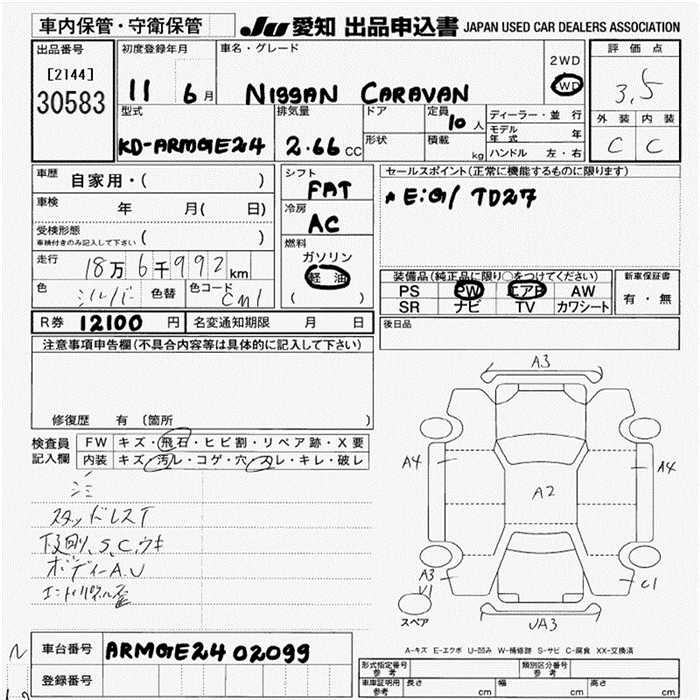 車内保管・守衛保管
JU 愛知 出品申込書 JAPAN USED CAR DEALERS ASSOCIATION
出品番号
[2144]
30583
初度登録年月
11 6 月
車名・グレード
NISSAN CARAVAN
2WD
4WD
評価点
3.5
外装 内装
C C
型式
KD-ARMGE24
排気量
2.66 CC
ドア
形状
定員
10 人
積載
kg
ディーラー・並行
モデル年式 年
ハンドル 左・右
車歴 自家用・( )
車検 年 月( 日)
受検形態
車検付きのみ記入して下さい ( )
走行 18万 6千992 km
色 シルバー 色替 色コード CM1
シフト
FAT
冷房
AC
燃料
ガソリン
軽油
( )
セールスポイント(正常に機能するものに限ります)
* E:G/ TD27
装備品(純正品に限り○をつけてください)
PS PW エアB AW
SR ナビ TV カワシート
新車保証書
有・無
R券 12100 円 名変通知期限 月 日
後日品
注意事項申告欄(不具合内容等は具体的に記入して下さい)
修復歴 有 〔箇所 〕
検査員
記入欄
FW キズ・飛石・ヒビ割・リペア跡・X要
内装 キズ・汚レ・コゲ・穴・スレ・キレ・破レ
スタッドレスT
下廻、S、C、ウキ
ボディーA.U
A3
A4
A4
A2
A3
U1
C1
UA3
スペア
A-キズ E-エクボ U-凹み W-補修跡 S-サビ C-腐食 XX-交換済
車台番号 ARMGE24 02099
登録番号
形式指定番号
参考
類別区分番号
参考
車庫証明用
参考
長さ cm 幅 cm 高さ cm